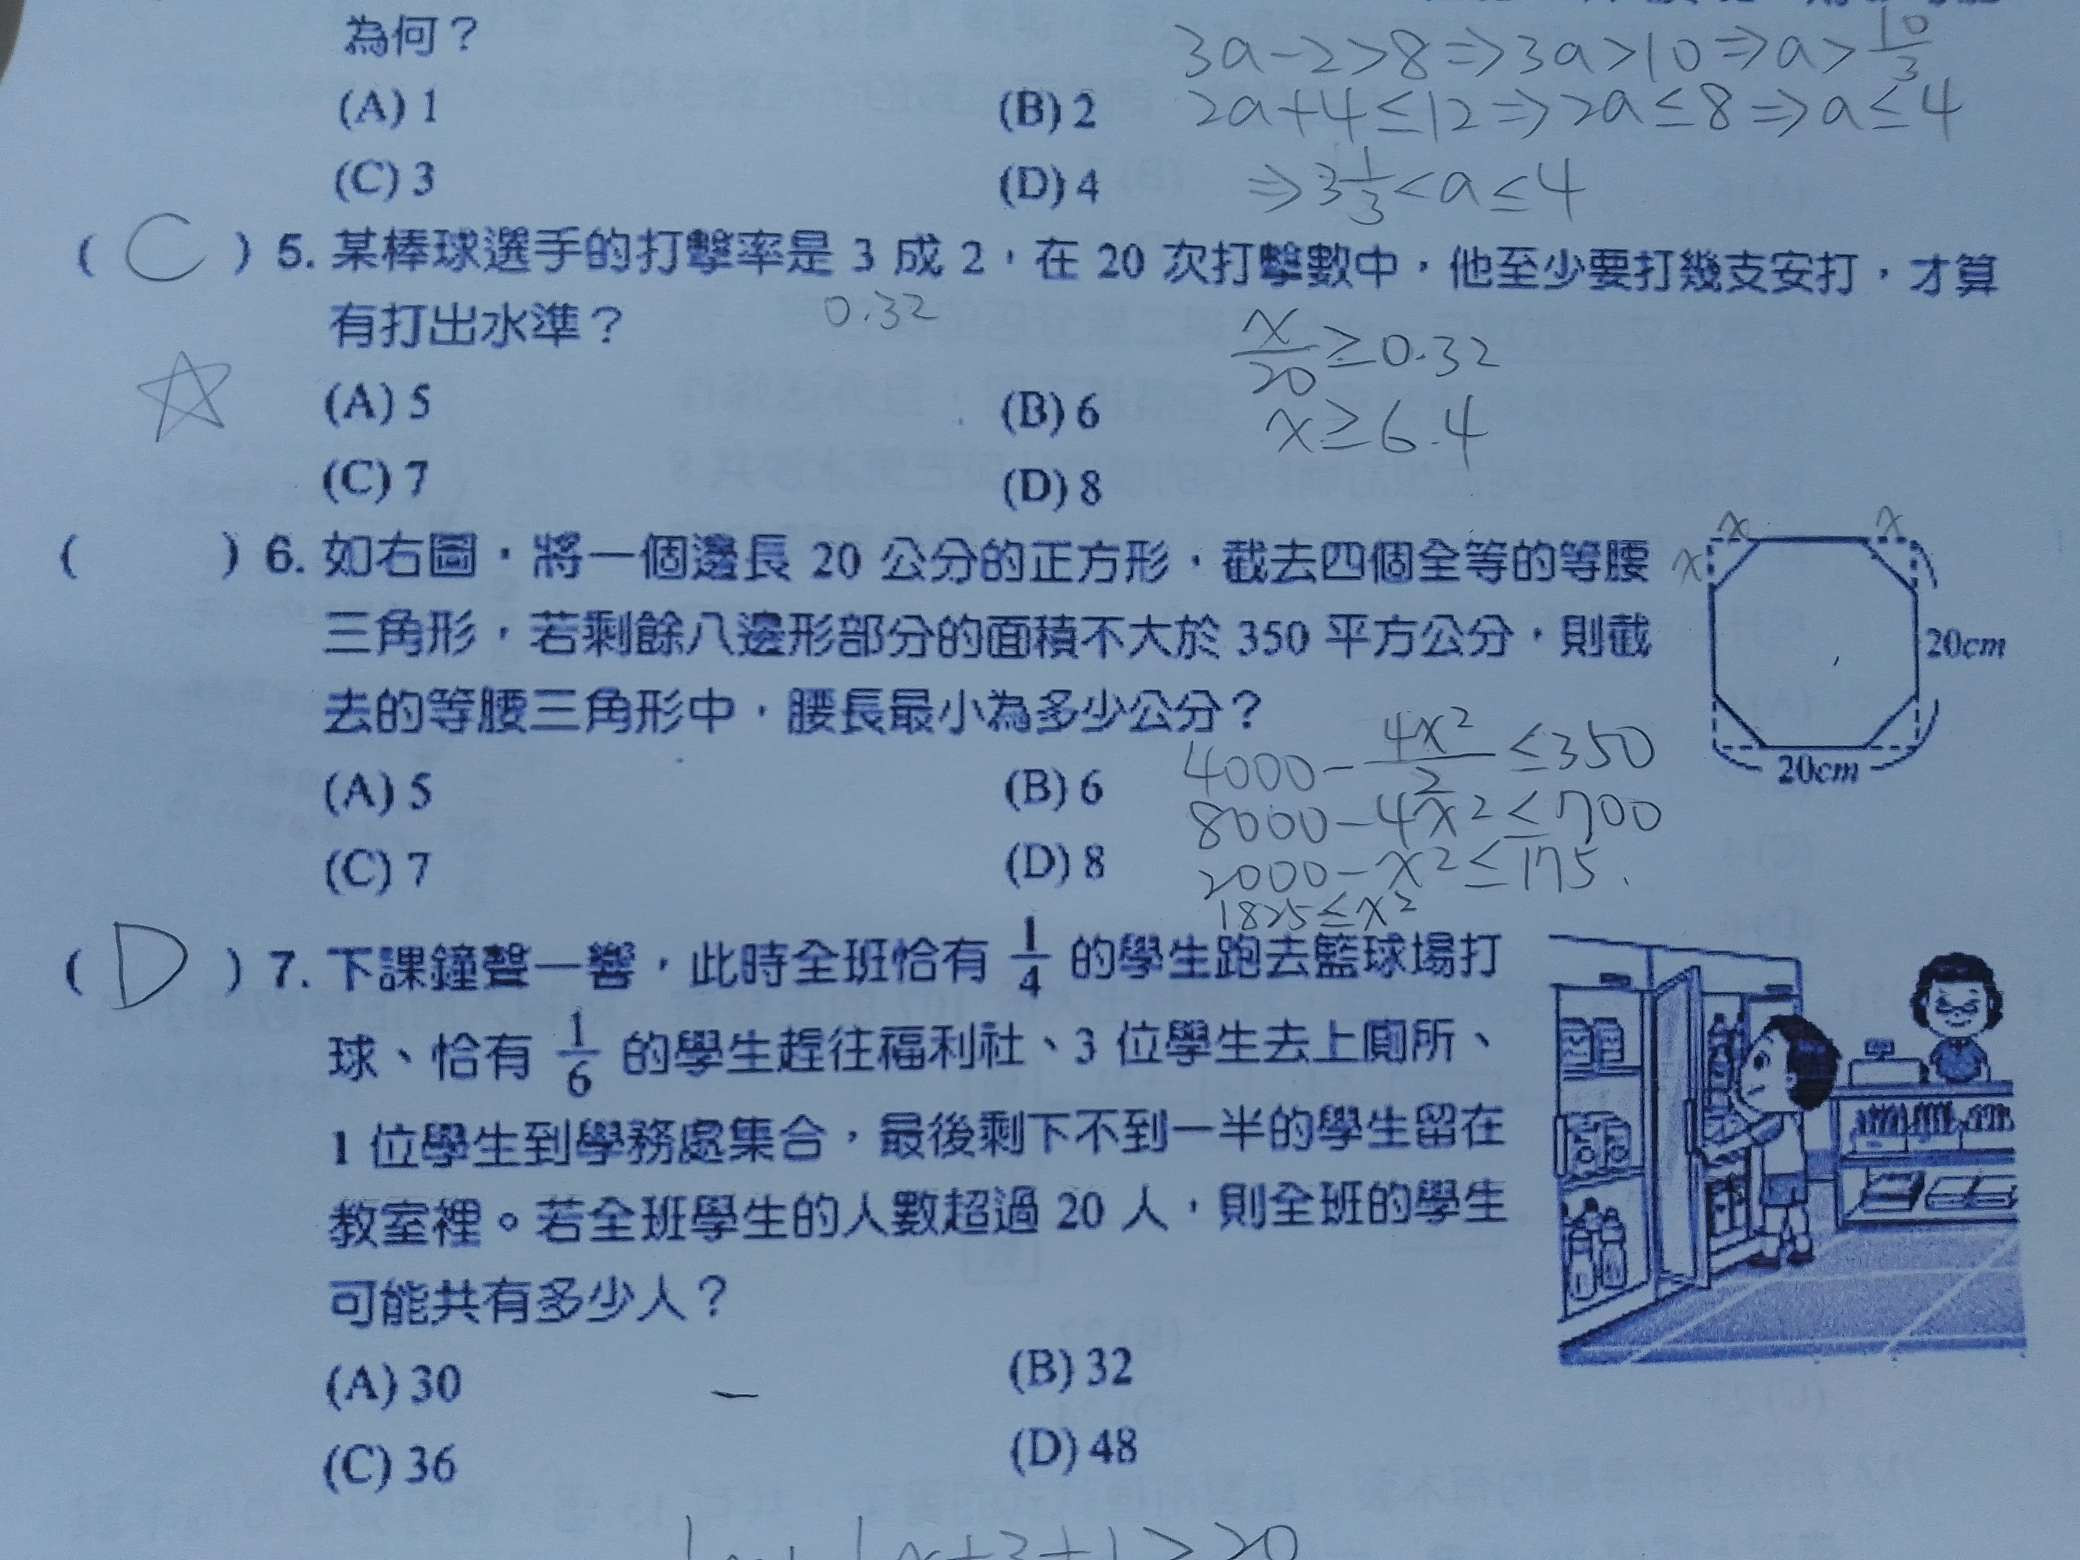 為何？
3a-2>8⇒3a>10⇒a>10/3
(A) 1
(B) 2
2a+4≤12⇒2a≤8⇒a≤4
(C) 3
(D) 4
⇒3 1/3<a≤4
( C ) 5. 某棒球選手的打擊率是 3 成 2，在 20 次打擊數中，他至少要打幾支安打，才算
有打出水準？
0.32
x/20≥0.32
(A) 5
(B) 6
x≥6.4
(C) 7
(D) 8
x x
( ) 6. 如右圖，將一個邊長 20 公分的正方形，截去四個全等的等腰
x
三角形，若剩餘八邊形部分的面積不大於 350 平方公分，則截
20cm
去的等腰三角形中，腰長最小為多少公分？
4000-4x²/2≤350
20cm
(A) 5
(B) 6
8000-4x²≤700
(C) 7
(D) 8
2000-x²≤175
1825≤x²
( D ) 7. 下課鐘聲一響，此時全班恰有 1/4 的學生跑去籃球場打
球、恰有 1/6 的學生趕往福利社、3 位學生去上廁所、
1 位學生到學務處集合，最後剩下不到一半的學生留在
教室裡。若全班學生的人數超過 20 人，則全班的學生
可能共有多少人？
(A) 30
(B) 32
(C) 36
(D) 48
x+3+1>20